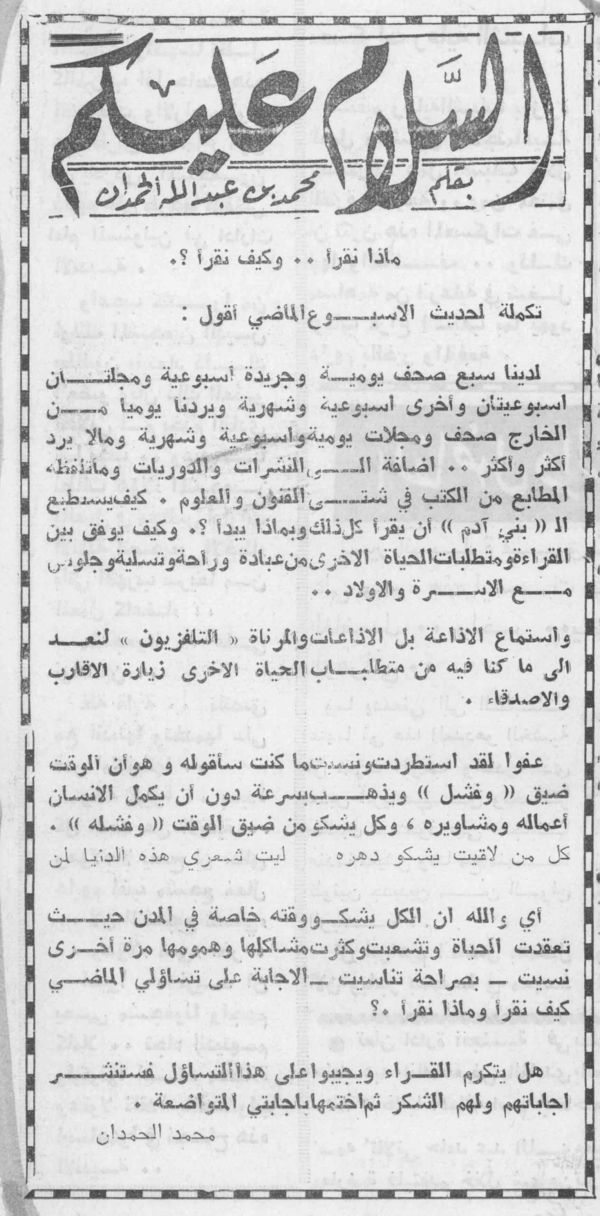 السلام عليكم
بقلم محمد بن عبدالله الحمدان
ماذا نقرأ ٠٠ وكيف نقرأ ؟٠
تكملة لحديث الاسبوع الماضي أقول :
لدينا سبع صحف يومية وجريدة أسبوعية ومجلتان
اسبوعيتان وأخرى اسبوعية وشهرية ويردنا يوميا من
الخارج صحف ومجلات يومية واسبوعية وشهرية ومالا يرد
أكثر وأكثر ٠٠ اضافة الى النشرات والدوريات وماتلفظه
المطابع من الكتب في شتى الفنون والعلوم ٠ كيف يستطيع
الـ (( بني آدم )) أن يقرأ كل ذلك وبماذا يبدأ ؟٠ وكيف يوفق بين
القراءة ومتطلبات الحياة الاخرى من عبادة وراحة وتسلية وجلوس
مع الاسرة والاولاد ٠٠
واستماع الاذاعة بل الاذاعات والمرناة « التلفزيون » لنعد
الى ما كنا فيه من متطلبات الحياة الاخرى زيارة الاقارب
والاصدقاء ٠
عفوا لقد استطردت ونسيت ما كنت سأقوله و هو أن الوقت
ضيق (( وفشل )) ويذهب بسرعة دون أن يكمل الانسان
أعماله ومشاويره ، وكل يشكو من ضيق الوقت (( وفشله )) ٠
كل من لاقيت يشكو دهره ليت شعري هذه الدنيا لمن
أي والله ان الكل يشكو وقته خاصة في المدن حيث
تعقدت الحياة وتشعبت وكثرت مشاكلها وهمومها مرة أخرى
نسيت ــ بصراحة تناسيت ــ الاجابة على تساؤلي الماضي
كيف نقرأ وماذا نقرأ ٠؟
هل يتكرم القراء ويجيبوا على هذا التساؤل فستنشر
اجاباتهم ولهم الشكر ثم اختمها باجابتي المتواضعة ٠
محمد الحمدان